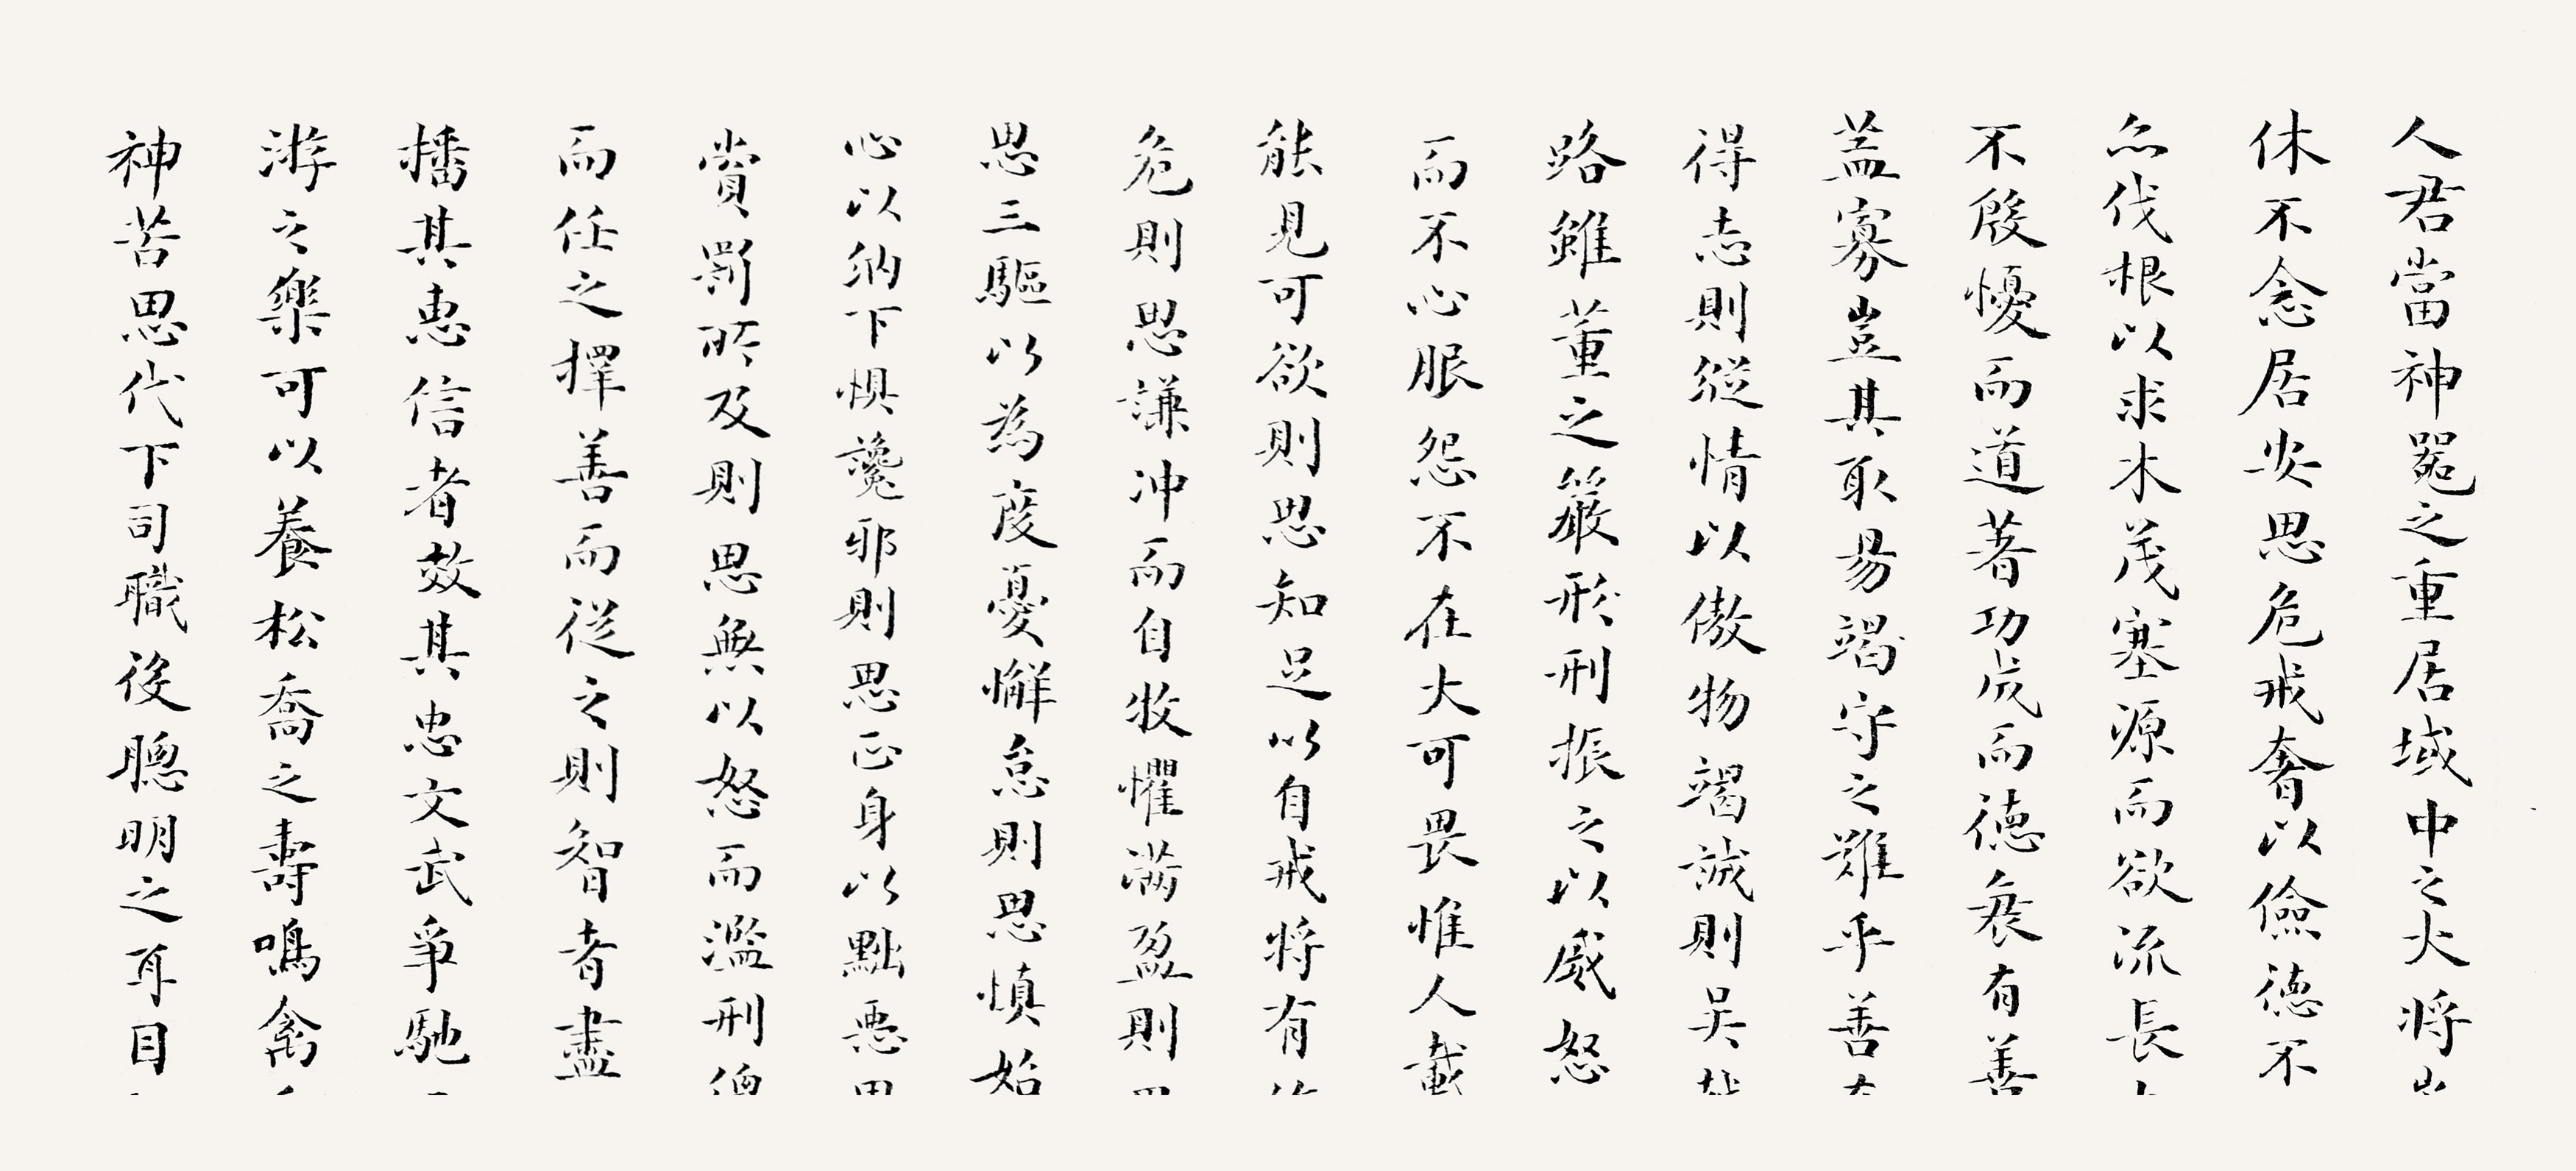 人君當神器之重居域中之大将
休不念居安思危戒奢以儉德不
亦伐根以求木茂塞源而欲流長
不殷憂而道著功成而德衰有善
蓋寡豈其取易竭守之難乎善
得志則縱情以傲物竭誠則吴
路雖董之以嚴形刑振之以威怒
而不心服怨不在大可畏惟人載
能見可欲則思知足以自戒将有
危則思謙冲而自牧懼满盈則
思三驅以為度憂懈怠則思慎始
心以納下惧讒邪則思正身以黜悪
賞罰所及則思無以怒而濫刑
而任之擇善而從之則智者盡
播其惠信者效其忠文武爭馳
游之樂可以養松喬之壽鳴禽
神苦思代下司職後聰明之耳目